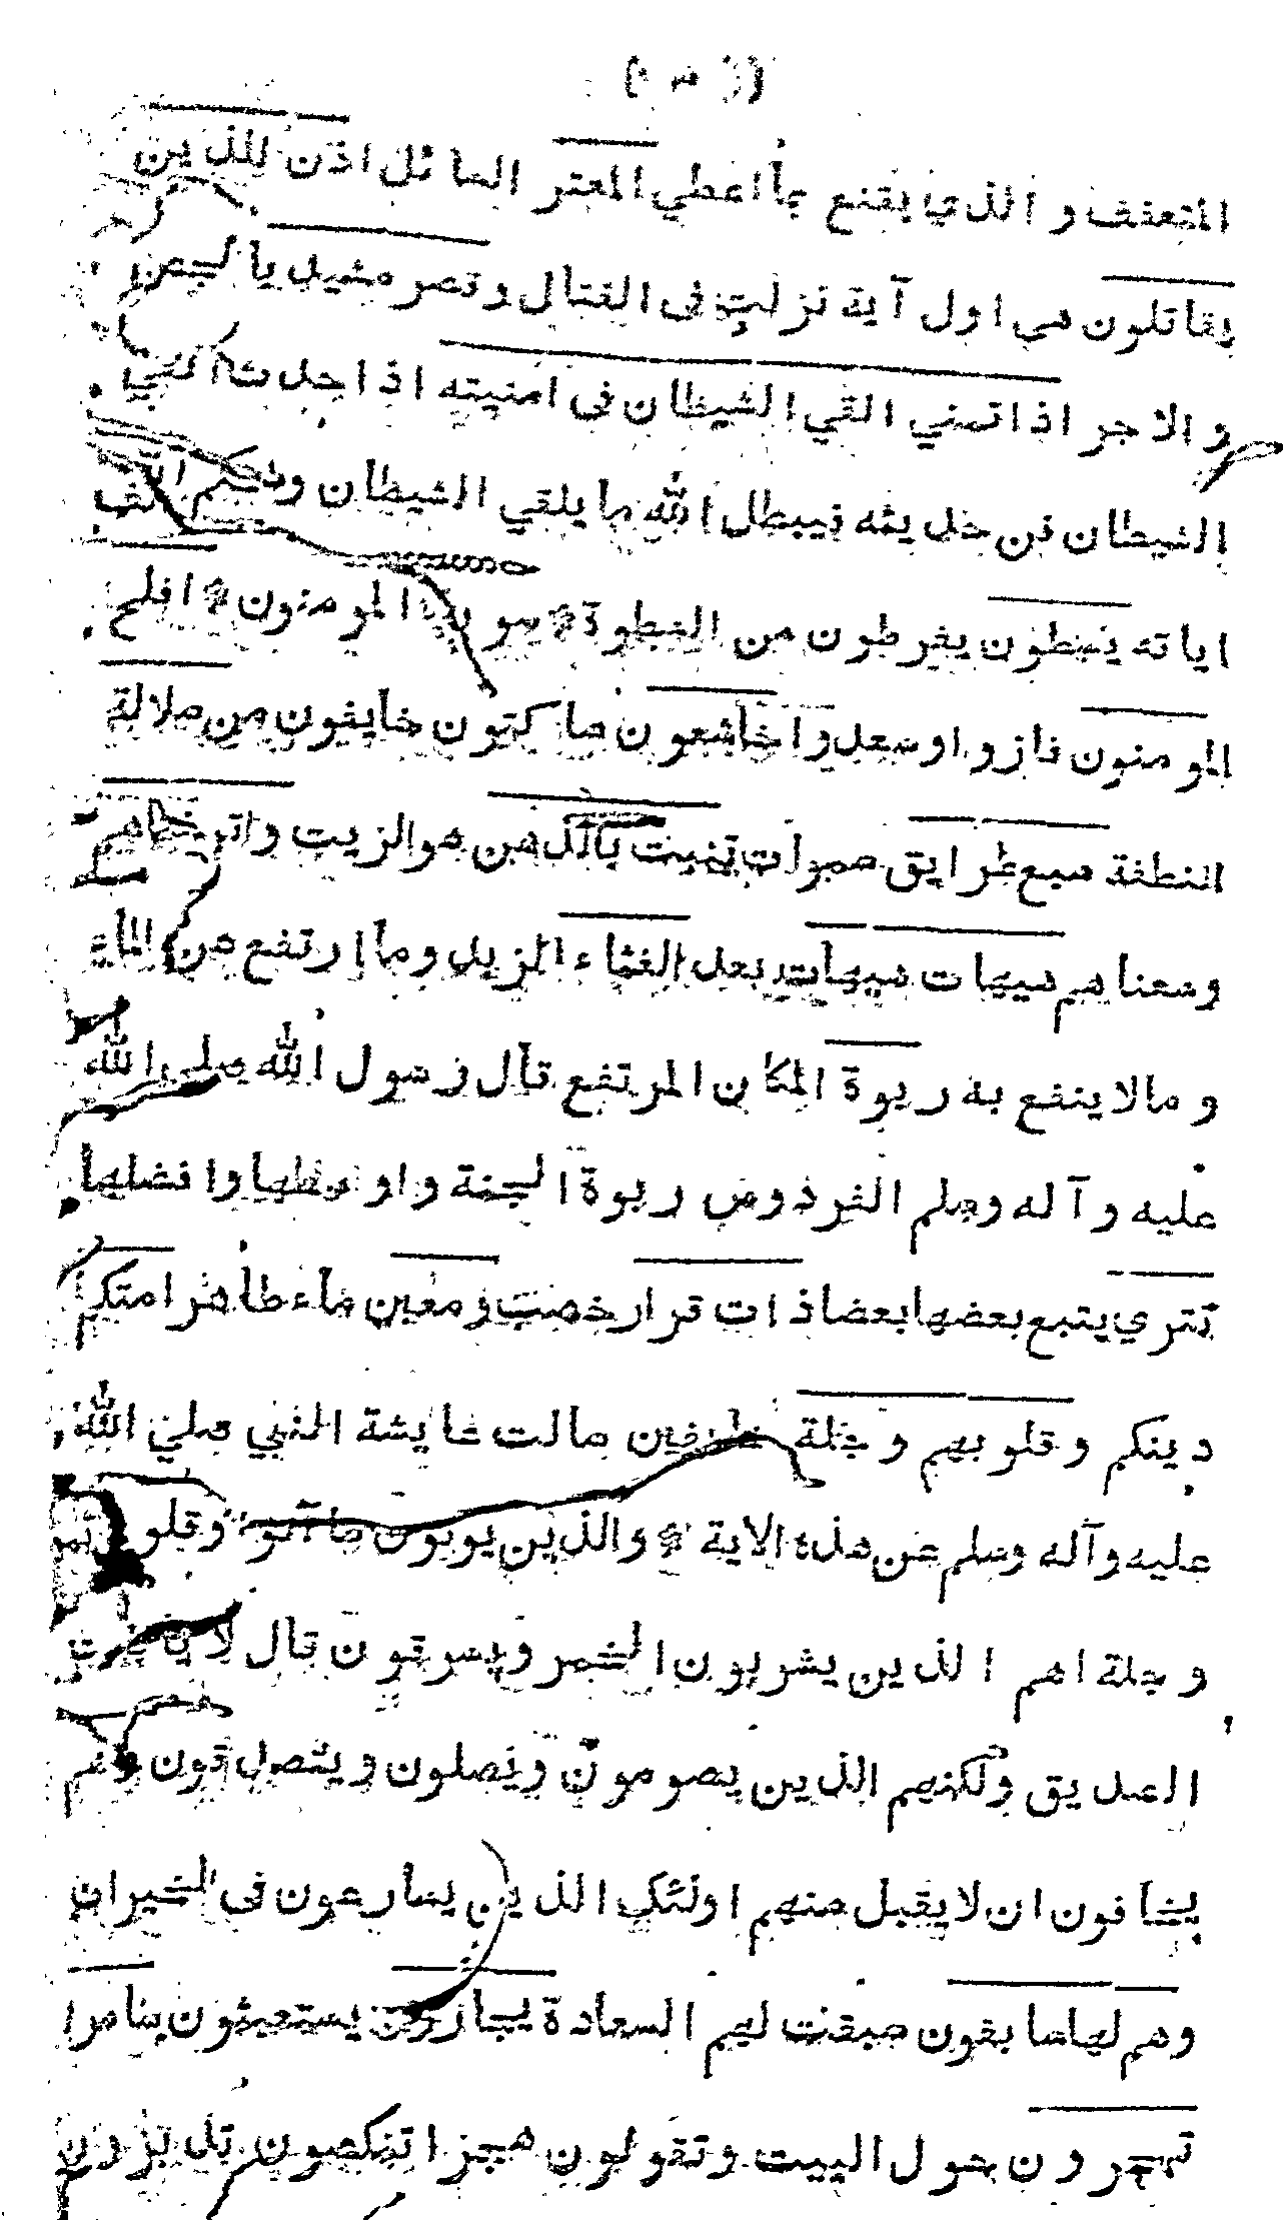 المتعفف و الذي يقنع بما اعطي المعتر السائل اذن للذين
يقاتلون هي اول آية نزلت فى القتال وقصر مشيد بالجص
و الاجر اذا تمني القي الشيطان فى امنيته اذا حدث القي
الشيطان فى حديثه فيبطل الله ما يلقي الشيطان ويحكم الله
اياته يسطون يفرطون من السطوة سورة المومنون افلح
المومنون فازوا وسعدوا خاشعون ساكتون خايفون من سلالة
النطفة سبع طرايق سموات تنبت بالدهن هو الزيت واترفناهم
وسعناهم هيهات هيهات بعد الغثاء الزبد وما ارتفع من الماء
و مالا ينفع به ربوة المكان المرتفع قال رسول الله صلى الله
عليه و آله وسلم الفردوس ربوة الجنة و اوسطها وافضلها
تترى يتبع بعضها بعضا ذات قرار خصب ومعين ماء طاهر امتكم
دينكم و قلوبهم وجلة خايفين سالت عايشة النبي صلي الله
عليه وآله وسلم عن هذه الاية والذين يوتون ما آتوا وقلوبهم
وجلة اهم الذين يشربون الخمر ويسرقون قال لا يا بنت
الصديق ولكنهم الذين يصومون ويصلون ويتصدقون وهم
يخافون ان لا يقبل منهم اولئك الذين يسارعون فى الخيرات
وهم لها سابقون سبقت لهم السعادة يجارون يستغيثون سامرا
تهجرون حول البيت وتقولون هجرا تنكصون تدبرون